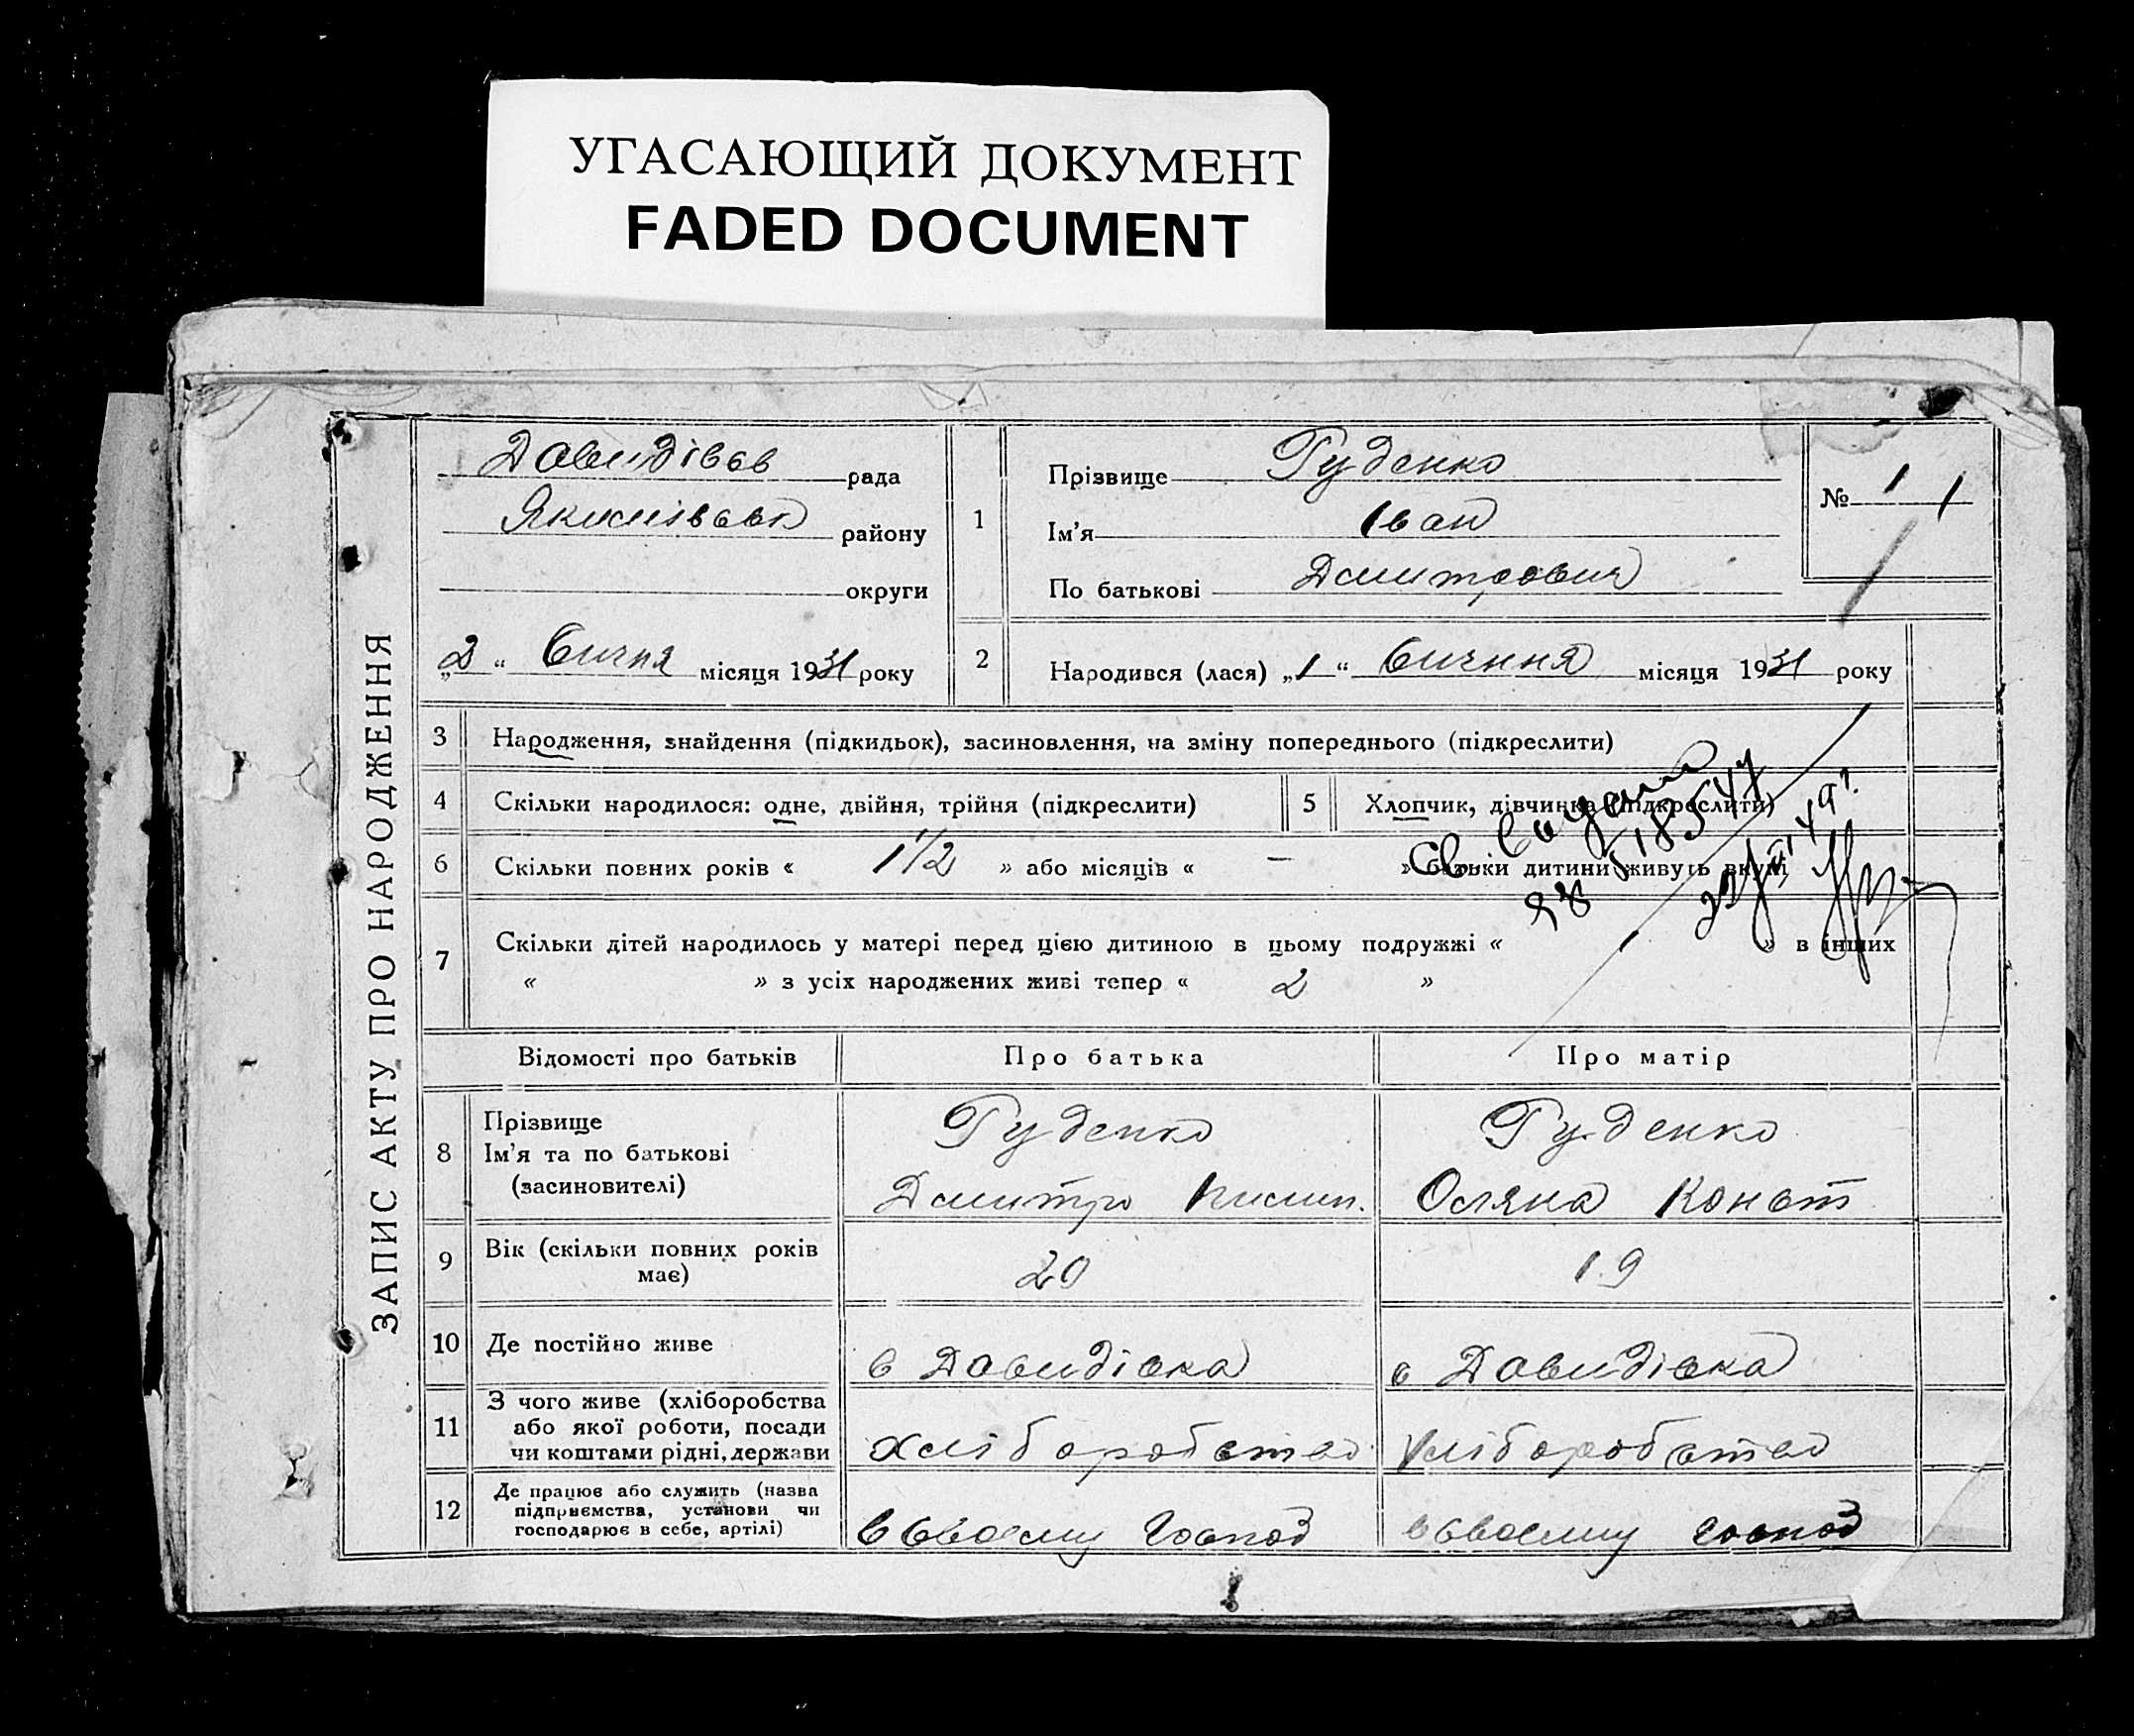 УГАСАЮЩИЙ ДОКУМЕНТ
FADED DOCUMENT
ЗАПИС АКТУ ПРО НАРОДЖЕННЯ
Давидівсв рада
Якимівськ району
округи
„2“ Січня місяця 1931 року
1
Прізвище Руденко
Ім'я Іван
По батькові Дмитрович
№ 1 1
2
Народився (лася) „1“ Січння місяця 1931 року
3 Народження, знайдення (підкидьок), засиновлення, на зміну попереднього (підкреслити)
4 Скільки народилося: одне, двійня, трійня (підкреслити)
5 Хлопчик, дівчинка (підкреслити)
6 Скільки повних років « 1 1/2 » або місяців « — » батьки дитини живуть вкупі
7 Скільки дітей народилось у матері перед цією дитиною в цьому подружжі « 1 » в інших
« » з усіх народжених живі тепер « 2 »
Св.
Відомості про батьків
Про батька
Про матір
8 Прізвище
Ім'я та по батькові
(засиновителі)
Руденко
Дмитро
Руденко
Конст
9 Вік (скільки повних років
має)
20
19
10 Де постійно живе
с Давидівка
с Давидівка
11 З чого живе (хліборобства
або якої роботи, посади
чи коштами рідні, держави
Хліборобство
Хліборобство
12 Де працює або служить (назва
підприємства, установи чи
господарює в себе, артілі)
в своєму господ
в своєму господ